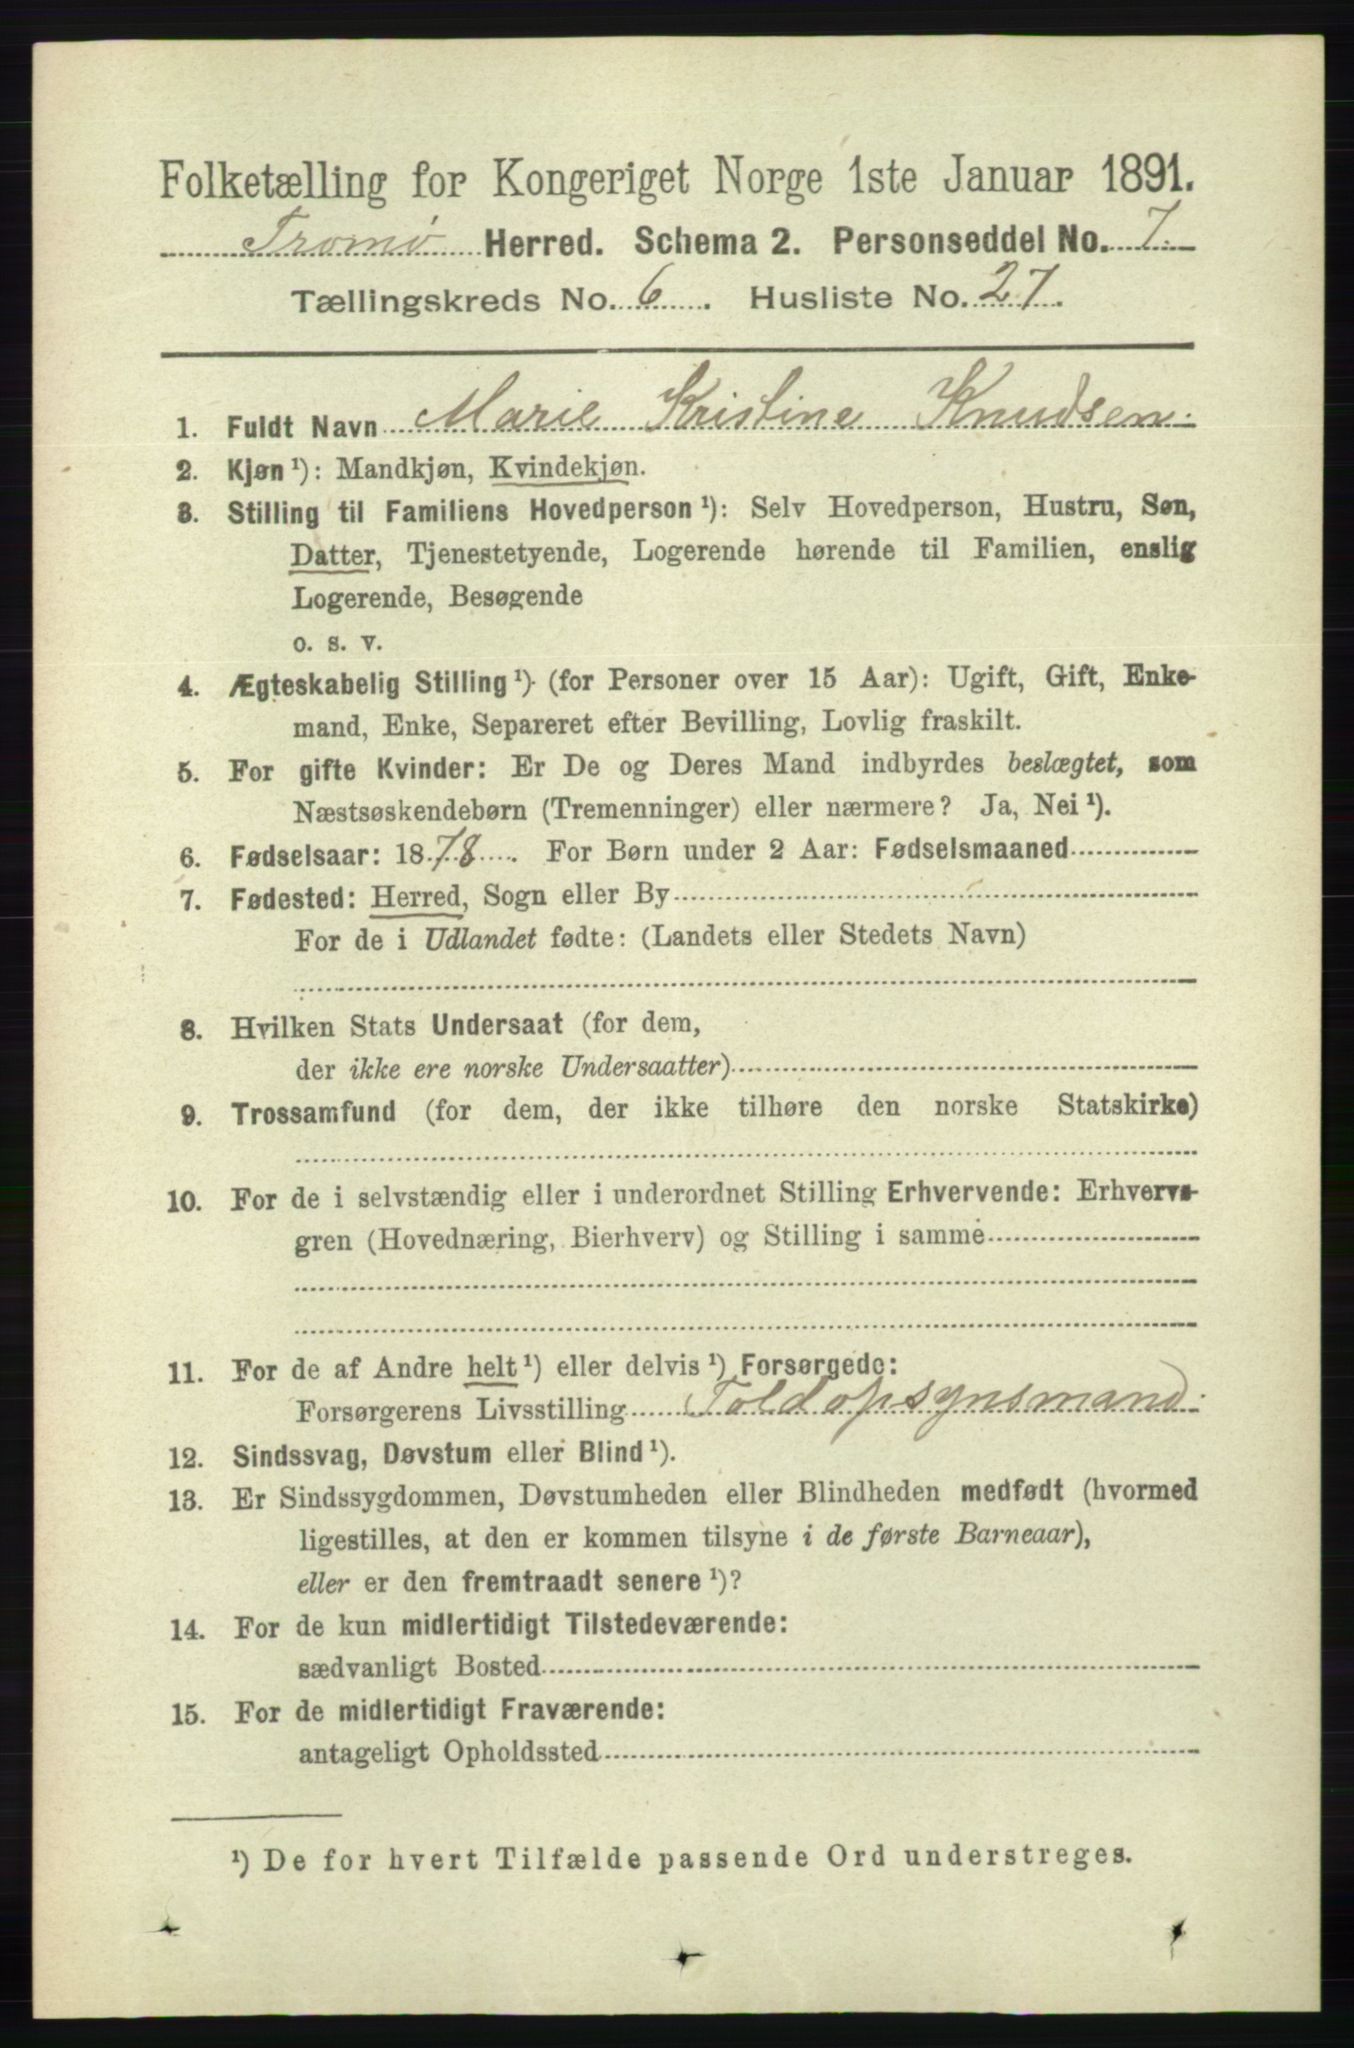 Folketælling for Kongeriget Norge 1ste Januar 1891.
Tromø Herred. Schema 2. Personseddel No. 7.
Tællingskreds No. 6. Husliste No. 27.
1. Fuldt Navn Marie Kristine Knudsen.
2. Kjøn ¹): Mandkjøn, Kvindekjøn.
3. Stilling til Familiens Hovedperson ¹): Selv Hovedperson, Hustru, Søn,
Datter, Tjenestetyende, Logerende hørende til Familien, enslig
Logerende, Besøgende
o. s. v.
4. Ægteskabelig Stilling ¹) (for Personer over 15 Aar): Ugift, Gift, Enke-
mand, Enke, Separeret efter Bevilling, Lovlig fraskilt.
5. For gifte Kvinder: Er De og Deres Mand indbyrdes beslægtet, som
Næstsøskendebørn (Tremenninger) eller nærmere? Ja, Nei ¹).
6. Fødselsaar: 1878. For Børn under 2 Aar: Fødselsmaaned
7. Fødested: Herred, Sogn eller By
For de i Udlandet fødte: (Landets eller Stedets Navn)
8. Hvilken Stats Undersaat (for dem,
der ikke ere norske Undersaatter)
9. Trossamfund (for dem, der ikke tilhøre den norske Statskirke)
10. For de i selvstændig eller i underordnet Stilling Erhvervende: Erhvervs-
gren (Hovednæring, Bierhverv) og Stilling i samme
11. For de af Andre helt ¹) eller delvis ¹) Forsørgede:
Forsørgerens Livsstilling Toldopsynsmand.
12. Sindssvag, Døvstum eller Blind ¹).
13. Er Sindssygdommen, Døvstumheden eller Blindheden medfødt (hvormed
ligestilles, at den er kommen tilsyne i de første Barneaar),
eller er den fremtraadt senere ¹)?
14. For de kun midlertidigt Tilstedeværende:
sædvanligt Bosted
15. For de midlertidigt Fraværende:
antageligt Opholdssted
¹) De for hvert Tilfælde passende Ord understreges.